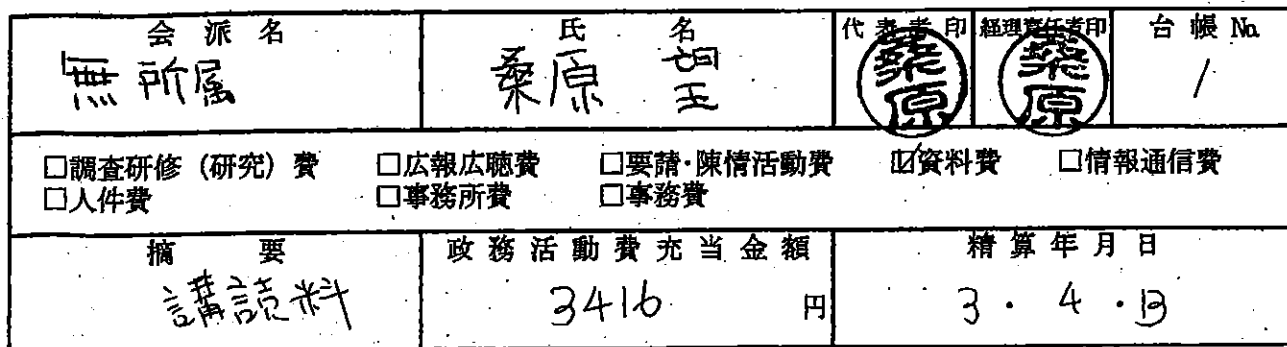 会派名 氏名 代表者印 経理責任者印 台帳 No.
無所属 桑原 望 桑原 桑原 1
□調査研修（研究）費 □広報広聴費 □要請・陳情活動費 ☑資料費 □情報通信費
□人件費 □事務所費 □事務費
摘要 政務活動費充当金額 精算年月日
講読料 3416 円 3・4・13